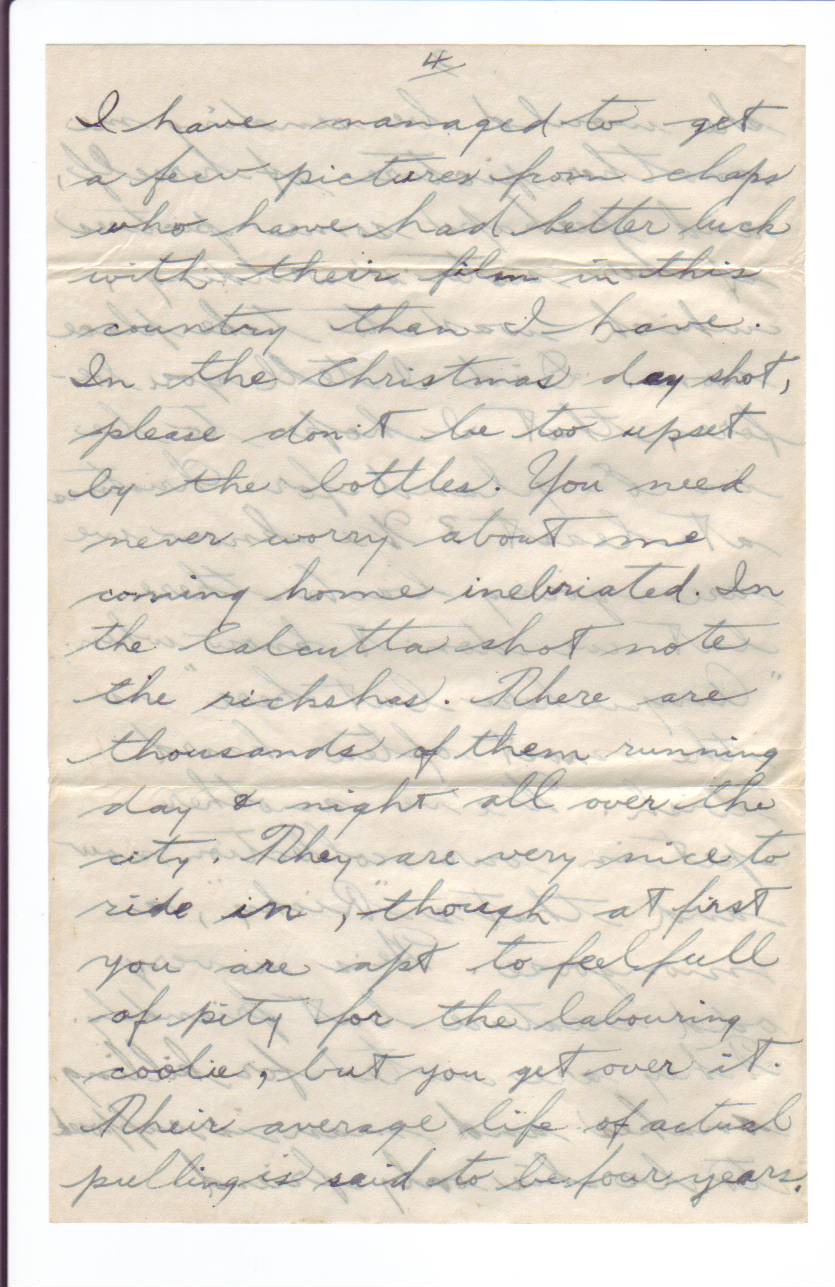 4
I have managed to get
a few pictures from chaps
who have had better luck
with their film in this
country than I have.
In the Christmas day shot,
please don't be too upset
by the bottles. You need
never worry about me
coming home inebriated. In
the Calcutta shot note
the "rickshas. There are
thousands of them running
day & night all over the
city. They are very nice to
ride in, though at first
you are apt to feel full
of pity for the labouring
coolie, but you get over it.
Their average life of actual
pulling is said to be four years.